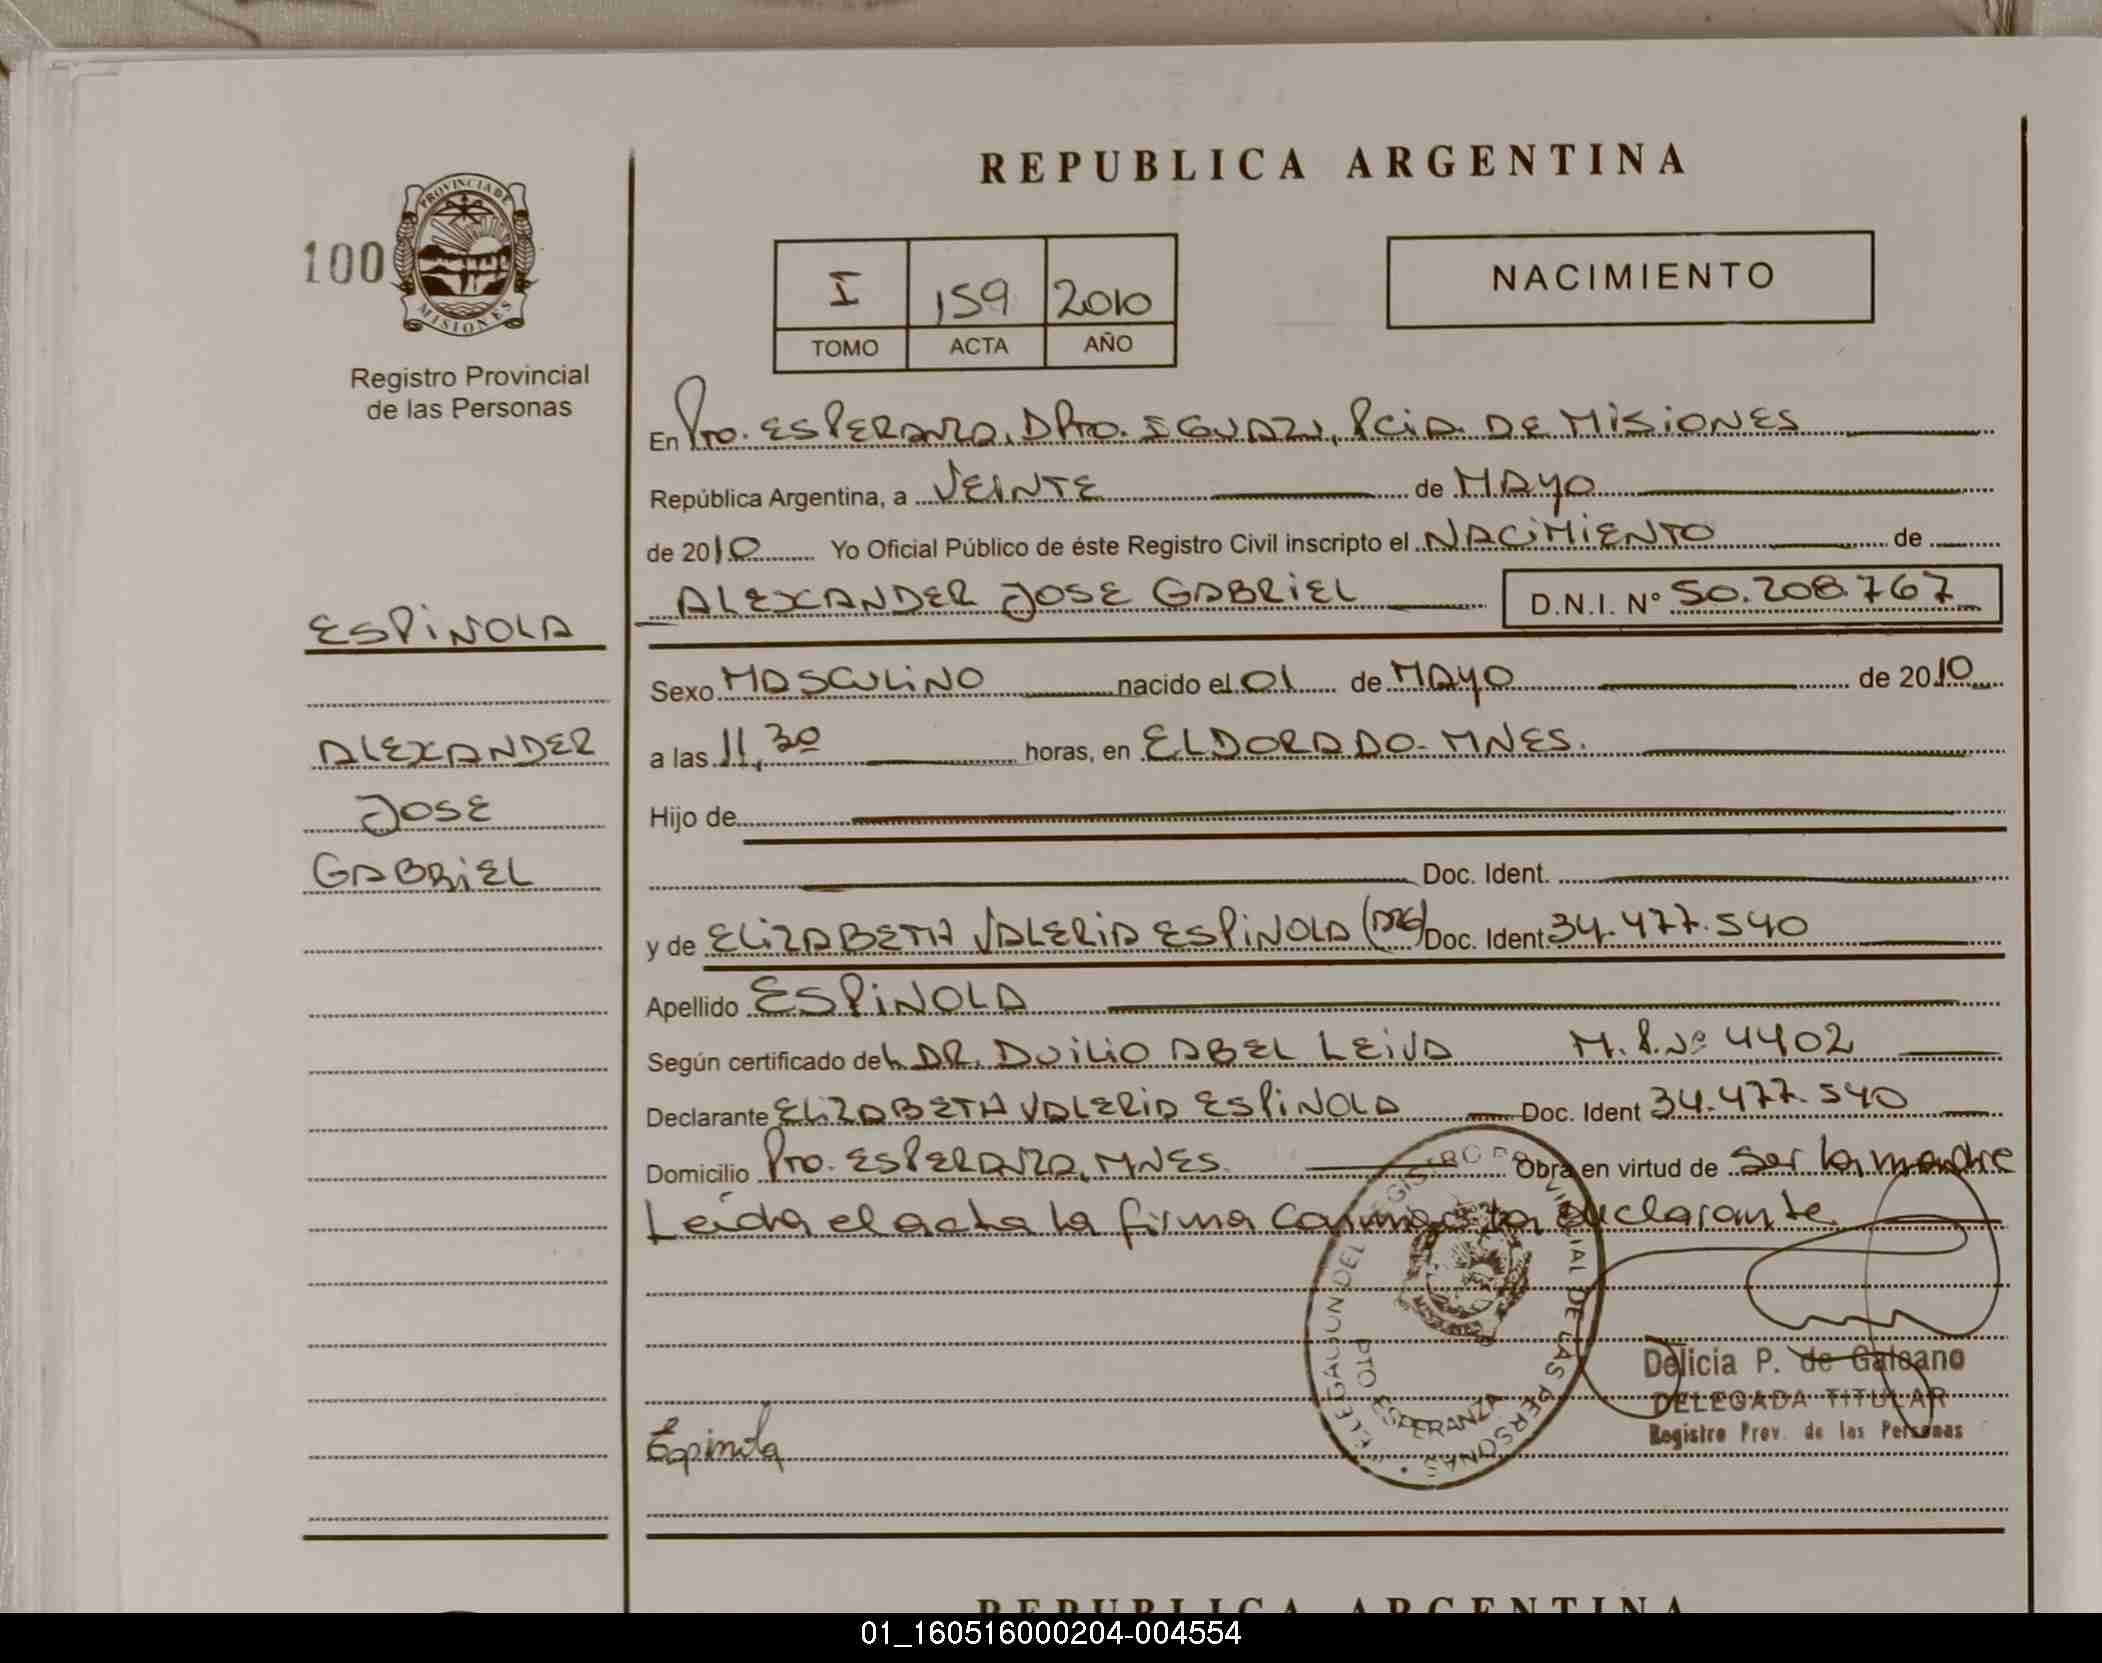 REPUBLICA ARGENTINA
100
PROVINCIA DE
MISIONES
Registro Provincial
de las Personas
I 159 2010
TOMO ACTA AÑO
NACIMIENTO
En Pto. ESPERANZA, DPto. IGUAZU, PCiA. DE MiSiONES
República Argentina, a VEINTE de MAYO
de 2010 Yo Oficial Público de éste Registro Civil inscripto el NACiMiENTO de
ALEXANDER JOSE GABRiEL D.N.I. Nº 50.208.767
ESPiNOLA
Sexo MASCULiNO nacido el 01 de MAYO de 2010
ALEXANDER
a las 11,30 horas, en ELDORADO- MNES.
JOSE
Hijo de
GABRiEL
Doc. Ident.
y de ELiZABETH VALERiA ESPiNOLA (ARG) Doc. Ident 34.477.540
Apellido ESPiNOLA
Según certificado del DR. DUiLiO ABEL LEiVA M.P.Nº 4402
Declarante ELiZABETH VALERiA ESPiNOLA Doc. Ident 34.477.540
Domicilio Pto. ESPERANZA, MNES. Obra en virtud de ser la madre
Leida el acta la firma conmigo la declarante
DEL REGISTRO PROVINCIAL DE LAS PERSONAS
PTO ESPERANZA
Delicia P. de Galeano
DELEGADA TITULAR
Registro Prov. de las Personas
Espinola
REPUBLICA ARGENTINA
01_160516000204-004554